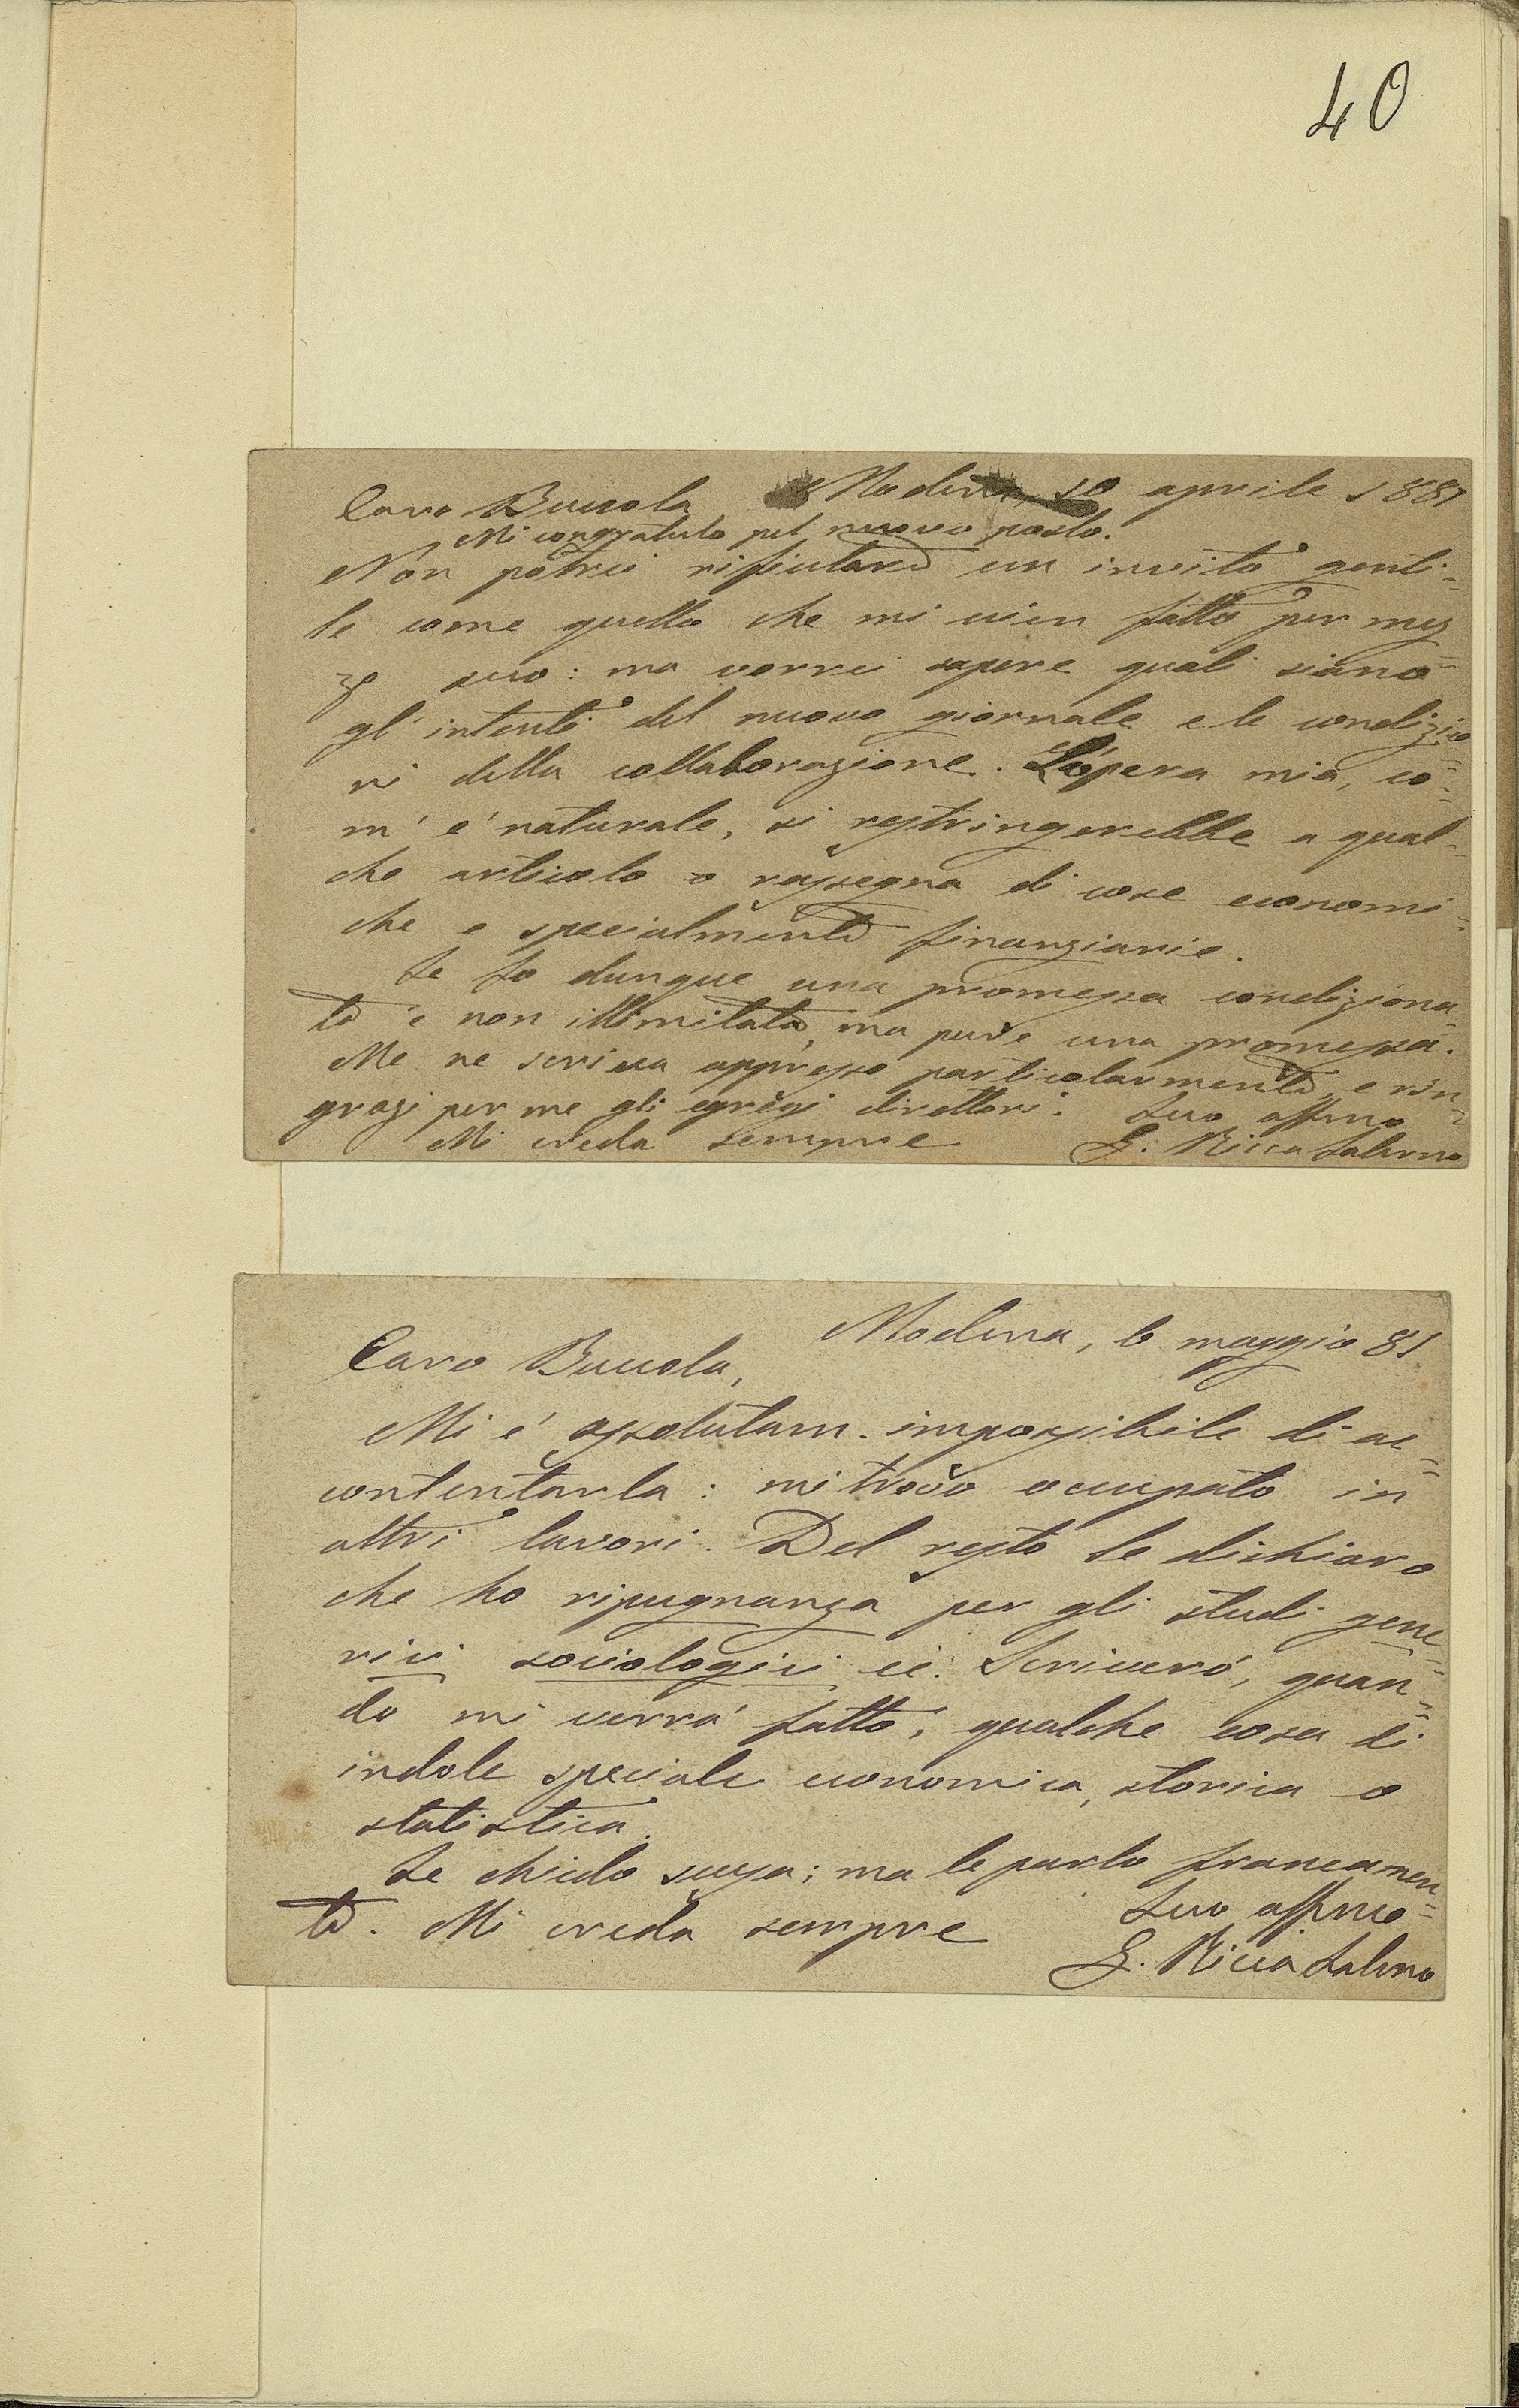 40
Modena, 10 aprile 1881
Caro Buccola
Mi congratulo pel nuovo posto.
Non potrei rifiutare un invito genti-
le come quello che mi vien fatto per mez
zo suo: ma vorrei sapere quali siano
gl' intenti del nuovo giornale e le condizio
ni della collaborazione. L'opera mia, co-
m' é naturale, si restringerebbe a qual-
che articolo o rassegna di cose economi-
che e specialmente finanziarie.
Le fo dunque una promessa condiziona-
ta e non illimitata, ma pure una promessa.
Me ne scriva appresso particolarmente, e rin-
grazi per me gli egregi direttori. Suo affmo
Mi creda sempre G. Ricca Salerno
Modena, 6 maggio 81
Caro Buccola,
Mi é assolutam. impossibile di ac-
contentarla: mi trovo occupato in
altri lavori. Del resto le dichiaro
che ho ripugnanza per gli studi gene
rici sociologici ec. Scriveró, quan-
do mi verrá fatto, qualche cosa di
indole speciale economica, storica o
statistica.
Le chiedo scusa; ma le parlo francamen-
te. Mi creda sempre Suo affmo
G. Ricca Salerno